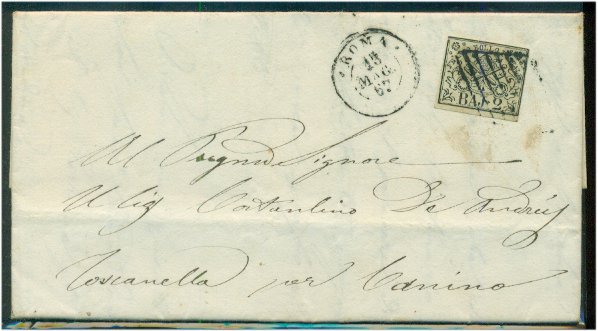 ROMA
15
MAG
67
BAJ. 2
Al Pregmo Signore
Il Sig Costantino De Andreis
Toscanella per Canino